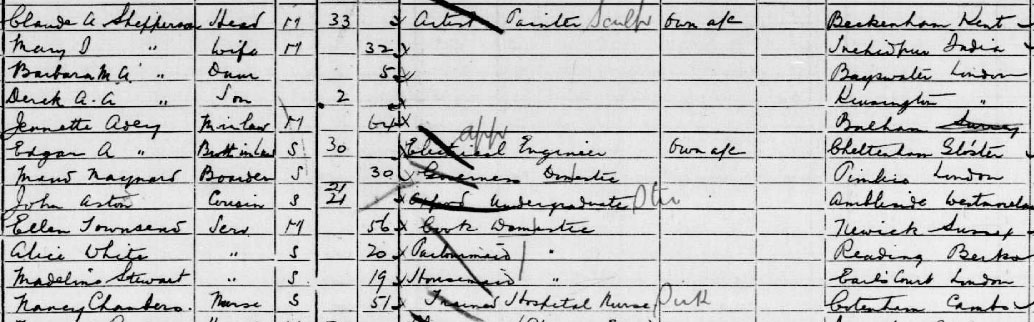 Claude A Shepperson Head M 33 Artist Painter Sculp own a/c Beckenham Kent
Mary I " Wife M 32 India
Barbara M. A " Daur 5 Bayswater London
Derek A. A " Son 2 Kensington "
Jeannette Avey M in law M 64 Balham Surrey
Edgar A " Broth in law S 30 Electrical Engineer appr own a/c Cheltenham Gloster
Maud Maynard Boarder S 30 Governess Domestic Pimlico London
John Aston Cousin S 21 21 Oxford Undergraduate Ambleside Westmorelan
Ellen Townsend Serv M 56 Cook Domestic Newick Sussex
Alice White " S 20 Parlourmaid " Reading Berks
Madeline Stewart " S 19 Housemaid " Earls Court London
Nancy Chambers. Nurse S 51 Trained Hospital Nurse Cotenham Cambs